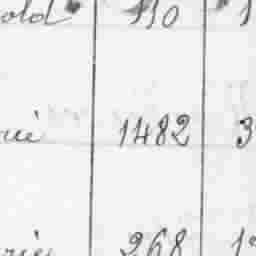 old 110 1
rié 1482 3
rié 268 1